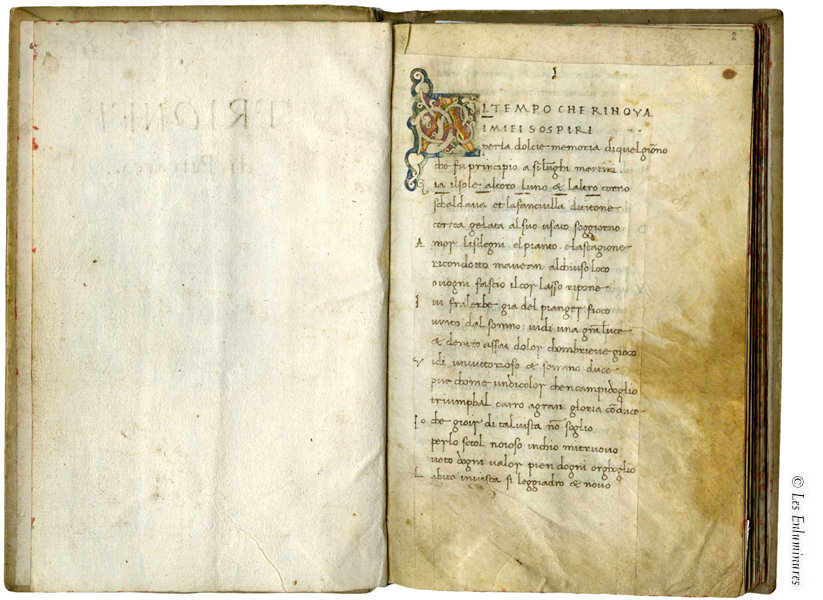 2
1
AL TEMPO CHE RINOVA
I MIEI SOSPIRI
perla dolcie memoria diquelgiorno
che fu principio a silũghi martiri
Gia ilsole altoro luno & laltro corno
schaldaua et lafanciulla dititone
correa gelata alsuo usato soggiorno
Amor lisdegni elpianto elastagione
ricondotto maueuan alchiuso loco
ouogni fascio ilcor lasso ripone
Iui fralerbe gia del pianger fioco
uinto dal somno: uidi una grã luce
& dentro assai dolor chombrieue gioco
Vidi unuictorioso & sommo duce
pur chome undicolor chencampidoglio
triumphal carro agran gloria cõduce
Io che gioir di taluista nõ soglio
perlo secol noioso inchio mitruouo
uoto dogni ualor pien dogni orghoglio
Labito inuista si leggiadro & nouo
© Les Enluminures